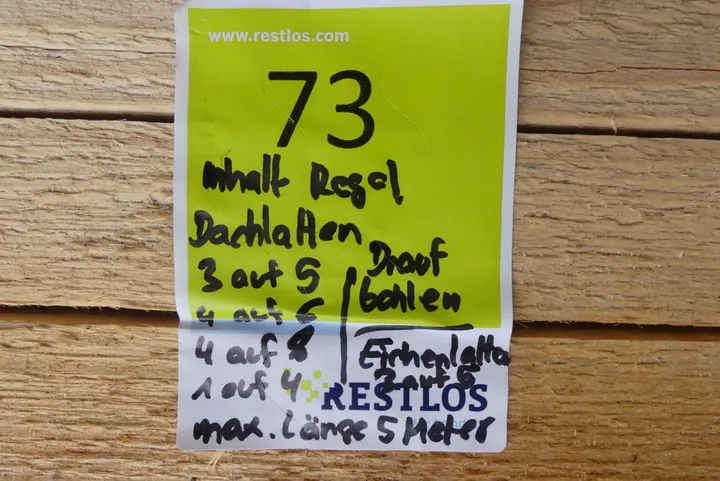 www.restlos.com
73
Inhalt Regal
Dachlatten
3 auf 5
4 auf 6
4 auf 8
1 auf 4
Drauf
bohlen
Eichenlatten
3 auf 5
RESTLOS
max. Länge 5 Meter